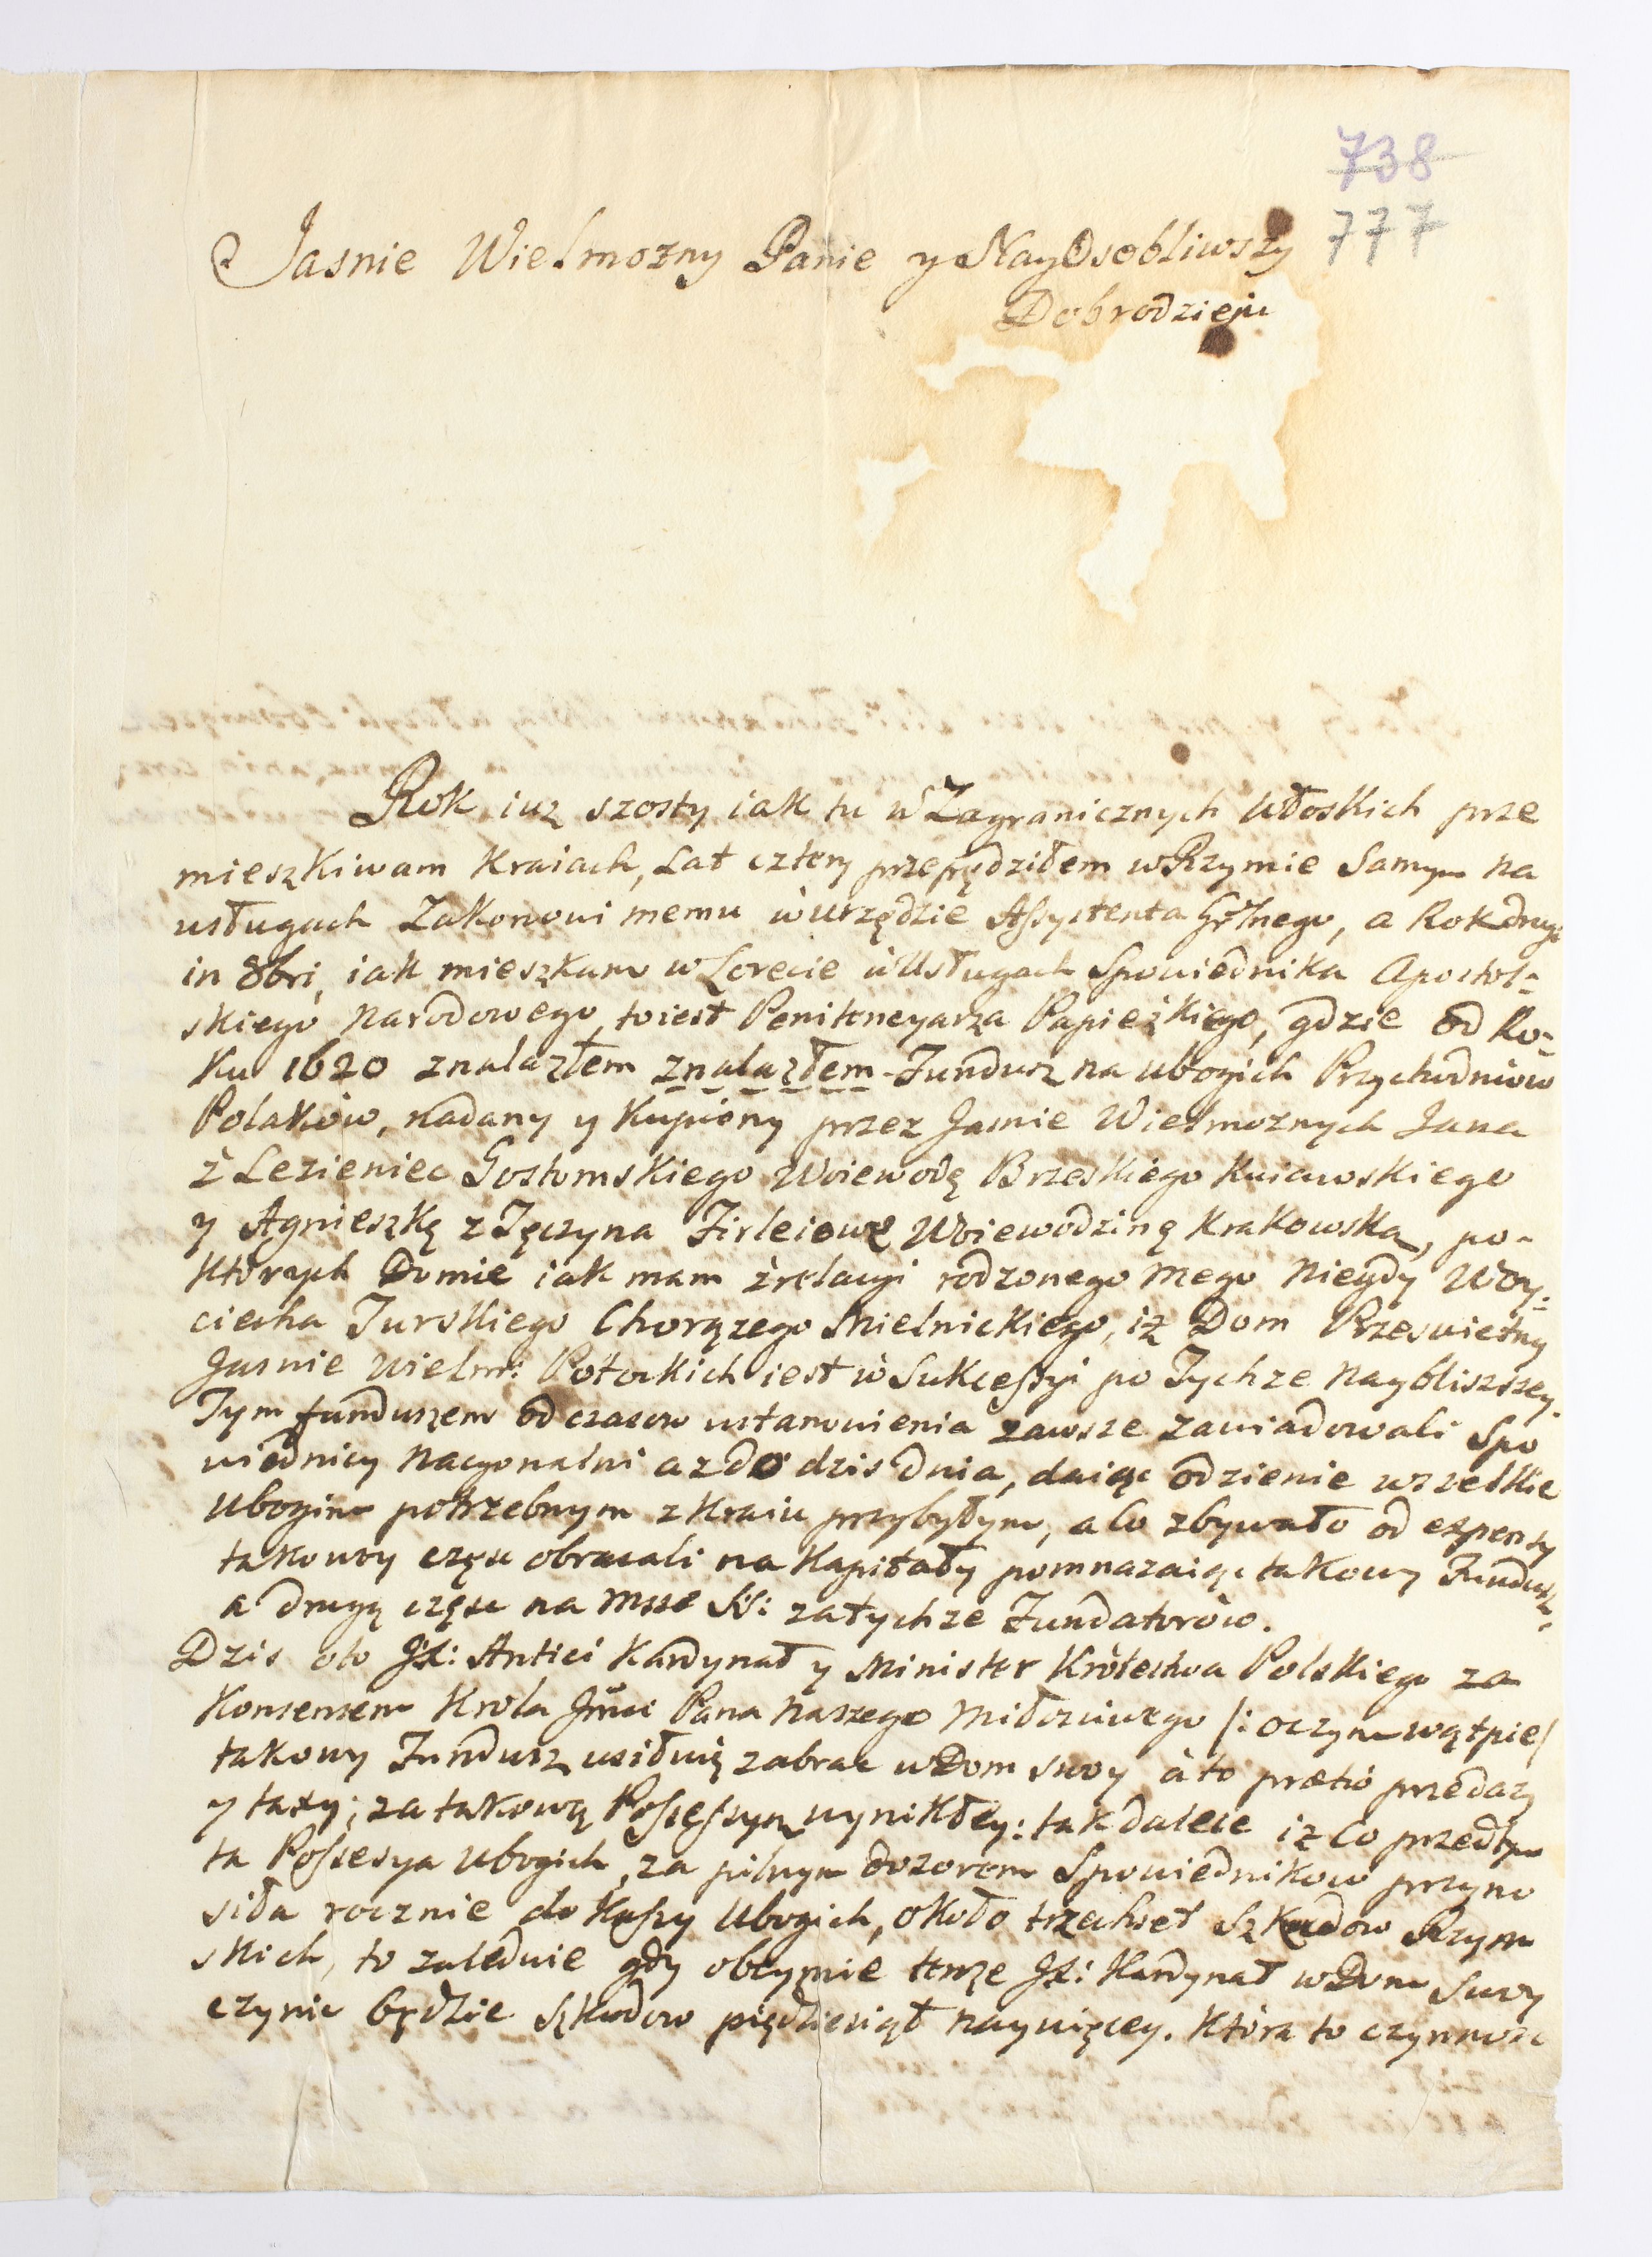 738
777
Jasnie Wielmozny Panie y NayOsobliwszy
Dobrodzieju
Rok iuz szosty iak tu w Zagranicznych Włoskich prze
mieszkiwam Kraiach, Lat cztery przepędziłem w Rzymie Samym na
usługach Zakonowi memu w urzędzie Assystenta Grłnego, a Rok drugi
in 8bri, iak mieszkam w Lorecie w Usługach Spowiednika Apostol=
skiego Narodowego, to iest Penitencyarza Papiezkiego, gdzie od Ro=
ku 1620 znalazłem znalazłem Fundusz na ubogich Przychodniow
Polaków, nadany y Kupiony przez Jasnie Wielmoznych Jana
z Lezieniec Gostomskiego Woiewodę Brzeskiego Kuiawskiego
y Agnieszkę z Tęczyna Firleiowę Woiewodzinę Krakowską, po-
Których Domie iak mam z relacyi rodzonego mego Niegdy Woy=
ciecha Turskiego Chorązego Mielnickiego, iz Dom Przeswietny
Jasnie Wielm: Potockich iest w Sukcessyi po Tychze Naybliszszey.
Tym funduszem od czasow ustanowienia zawsze zawiadowali Spo
wiednicy Nacyonalni az do dzis dnia, daiąc odzienie wszelkie
Ubogim potrzebnym z Kraiu przybyłym, a co zbywało od expensy
takowy częsc obracali na Kapitały pomnazaiąc takowy Fundusz,
a drugą częsc na Msse SS: za tychze Fundatorów.
Dzis oto JX: Antici Kardynał y Minister Królestwa Polskiego za
Konsensem Krola Jmci Pana Naszego Miłosciwego /: o czym wątpie/
takowy Fundusz usiłuię zabrac w Dom swoy à to prætió przedazy
y taxy; za takową Possessyą wynikłey: tak dalece iz co przedtym
ta Possesya Ubogich, za pilnym dozorem Spowiednikow przyno
siła rocznie do Kassy Ubogich, około trzechset Szkudow Rzym
skich, to zaledwie gdy obeymie tenze JX: Kardynał w Dom Swoy
czynic będzie Szkudow pięcdziesiąt naywięcey. Która to czynnosc